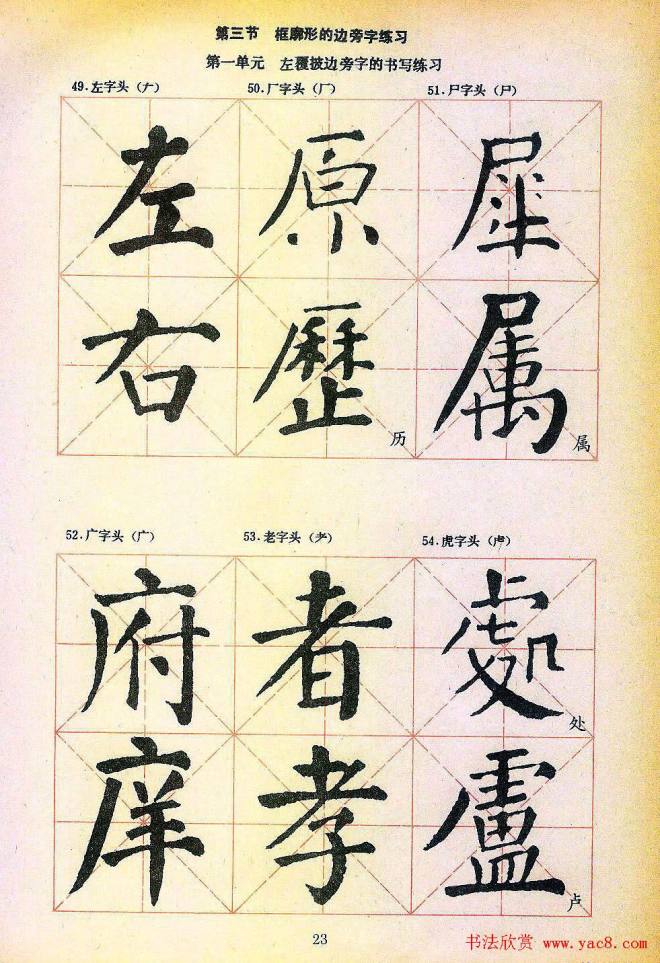 第三节 框廓形的边旁字练习
第一单元 左覆披边旁字的书写练习
49.左字头(𠂇) 50.厂字头(厂) 51.尸字头(尸)
左 原 犀
右 歷 属
历 属
52.广字头(广) 53.老字头(耂) 54.虎字头(虍)
府 者 處
处
庠 孝 盧
卢
23
书法欣赏 www.yac8.com